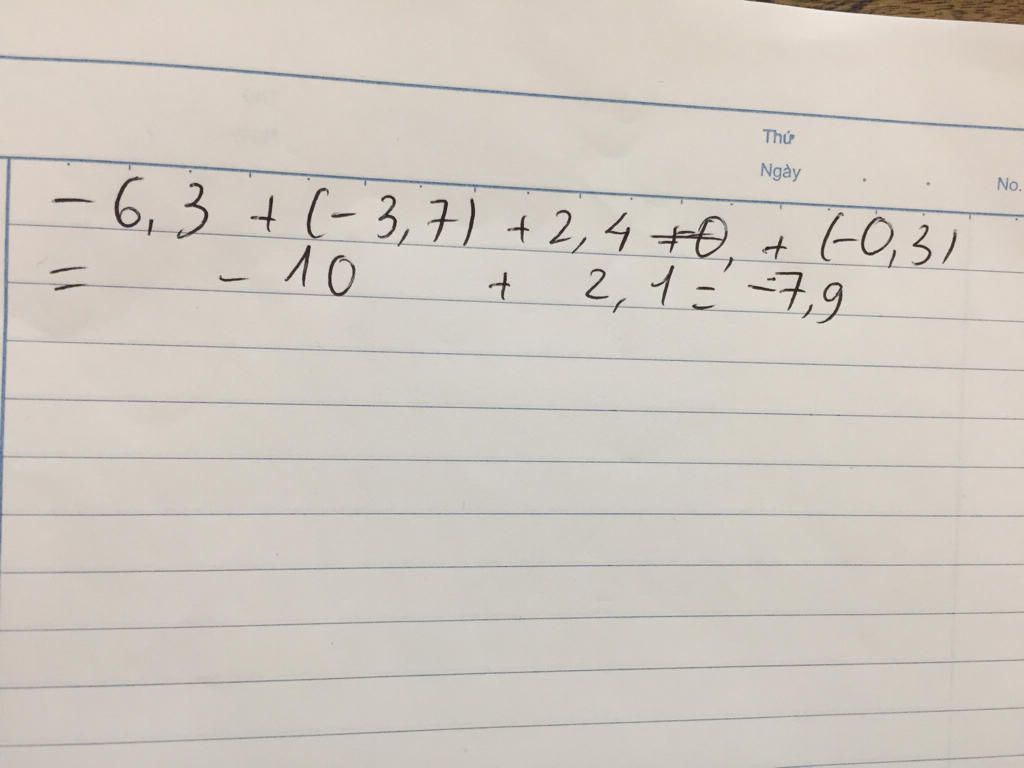 Thứ
Ngày
No.
- 6,3 + (-3,7) + 2,4 + (-0,3)
= - 10 + 2,1 = -7,9